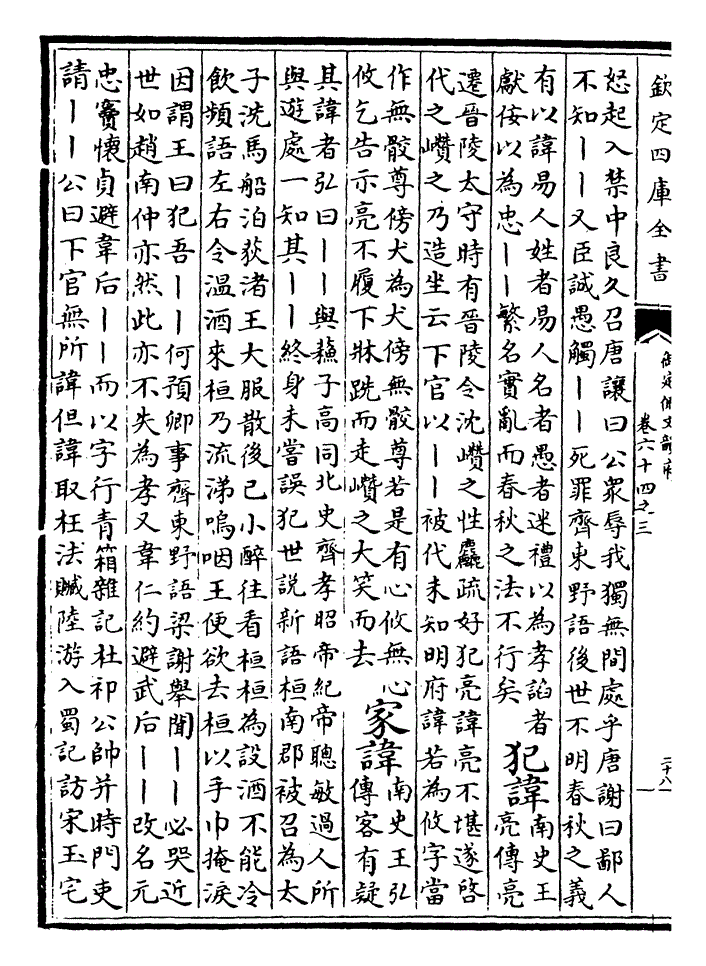 欽定四庫全書
御定佩文韻府
卷六十四之三
二十八
怒起入禁中良久召唐讓曰公衆辱我獨無間處乎唐謝曰鄙人
不知丨丨又臣誠愚觸丨丨死罪齊東野語後世不明春秋之義
有以諱易人姓者易人名者愚者迷禮以為孝諂者
獻佞以為忠丨丨繁名實亂而春秋之法不行矣
犯諱
南史王
亮傳亮
遷晉陵太守時有晉陵令沈巑之性麤疏好犯亮諱亮不堪遂啓
代之巑之乃造坐云下官以丨丨被代未知明府諱若為攸字當
作無骹尊傍犬為犬傍無骹尊若是有心攸無心
攸乞告示亮不履下牀跣而走巑之大笑而去
家諱
南史王弘
傳客有疑
其諱者弘曰丨丨與蘇子高同北史齊孝昭帝紀帝聰敏過人所
與遊處一知其丨丨終身未嘗誤犯世說新語桓南郡被召為太
子洗馬船泊荻渚王大服散後已小醉往看桓桓為設酒不能冷
飲頻語左右令溫酒來桓乃流涕嗚咽王便欲去桓以手巾掩淚
因謂王曰犯吾丨丨何預卿事齊東野語梁謝舉聞丨丨必哭近
世如趙南仲亦然此亦不失為孝又韋仁約避武后丨丨改名元
忠竇懷貞避韋后丨丨而以字行青箱雜記杜祁公帥并時門吏
請丨丨公曰下官無所諱但諱取枉法贓陸游入蜀記訪宋玉宅